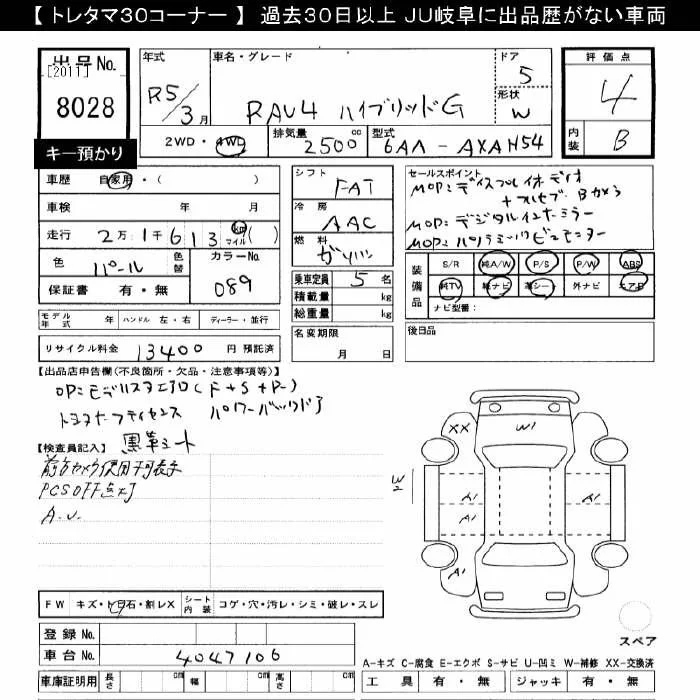 【 トレタマ30コーナー 】 過去30日以上 JU岐阜に出品歴がない車両
出品No.
[2011]
8028
キー預かり
年式
R5/3月
車名・グレード
RAV4 ハイブリッドG
ドア
5
形状
W
評価点
4
内装
B
2WD・4WD
排気量
2500
cc
型式
6AA-AXAH54
車歴 自家用・( )
車検 年 月
走行 2万1千613 km マイル ( )
色 パール
色替
カラーNo.
089
保証書 有・無
シフト
FAT
冷房
AAC
燃料
ガソリン
乗車定員 5名
積載量 kg
総重量 kg
名変期限
月 日
セールスポイント
MOP:ディスプレイオーディオ
+フルセグ.Bカメラ
MOP:デジタルインナーミラー
MOP:パノラミックビューモニター
装備品
S/R 純A/W P/S P/W ABS
純TV 純ナビ 革シート 外ナビ エアB
ナビ型番:
後日品
モデル年式 年 ハンドル 左・右 ディーラー・並行
リサイクル料金 13400 円 預託済
【出品店申告欄(不良箇所・欠品・注意事項等)】
OP:モデリスタエアロ(F+S+R)
パワーバックドア
【検査員記入】
黒革シート
PCSOFF点灯
A.U.
FW キズ・トビ石・割レX
シート内装
コゲ・穴・汚レ・シミ・破レ・スレ
登録No.
車台No.
4047106
車庫証明用 長さ cm 幅 cm 高さ cm
XX
W1
W2
A1
A1
A1
A1
スペア
A-キズ C-腐食 E-エクボ S-サビ U-凹ミ W-補修 XX-交換済
工具 有・無 ジャッキ 有・無